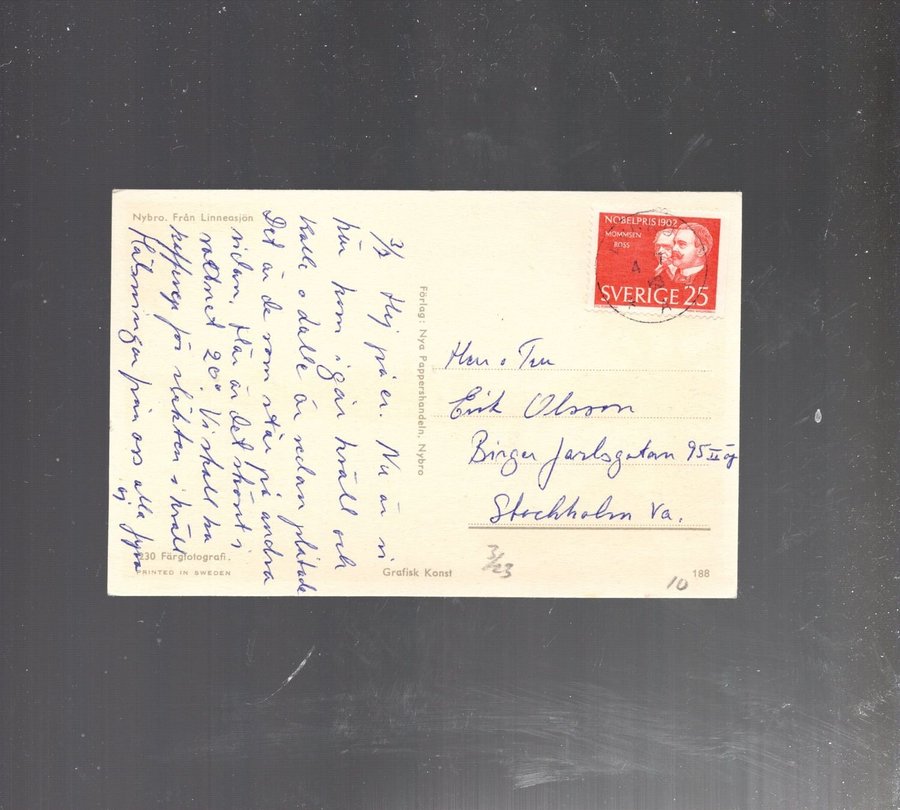 Nybro. Från Linneasjön
3/7 Hej på er. Nu är vi
här kom igår kväll och
Kalle o dalle är redan plåtade
Det är de som står på andra
sidan, Här är det skönt i
vattnet 20° Vi skall ha
för släkten i kväll
Hälsningar från oss alla fyra
230 Färgfotografi.
PRINTED IN SWEDEN
Förlag: Nya Pappershandeln, Nybro
Grafisk Konst
188
NOBELPRIS 1902
MOMMSEN
ROSS
SVERIGE 25
Herr o Fru
Erik Olsson
Birger Jarlsgatan 95 II ög
Stockholm Va.
3/23
10